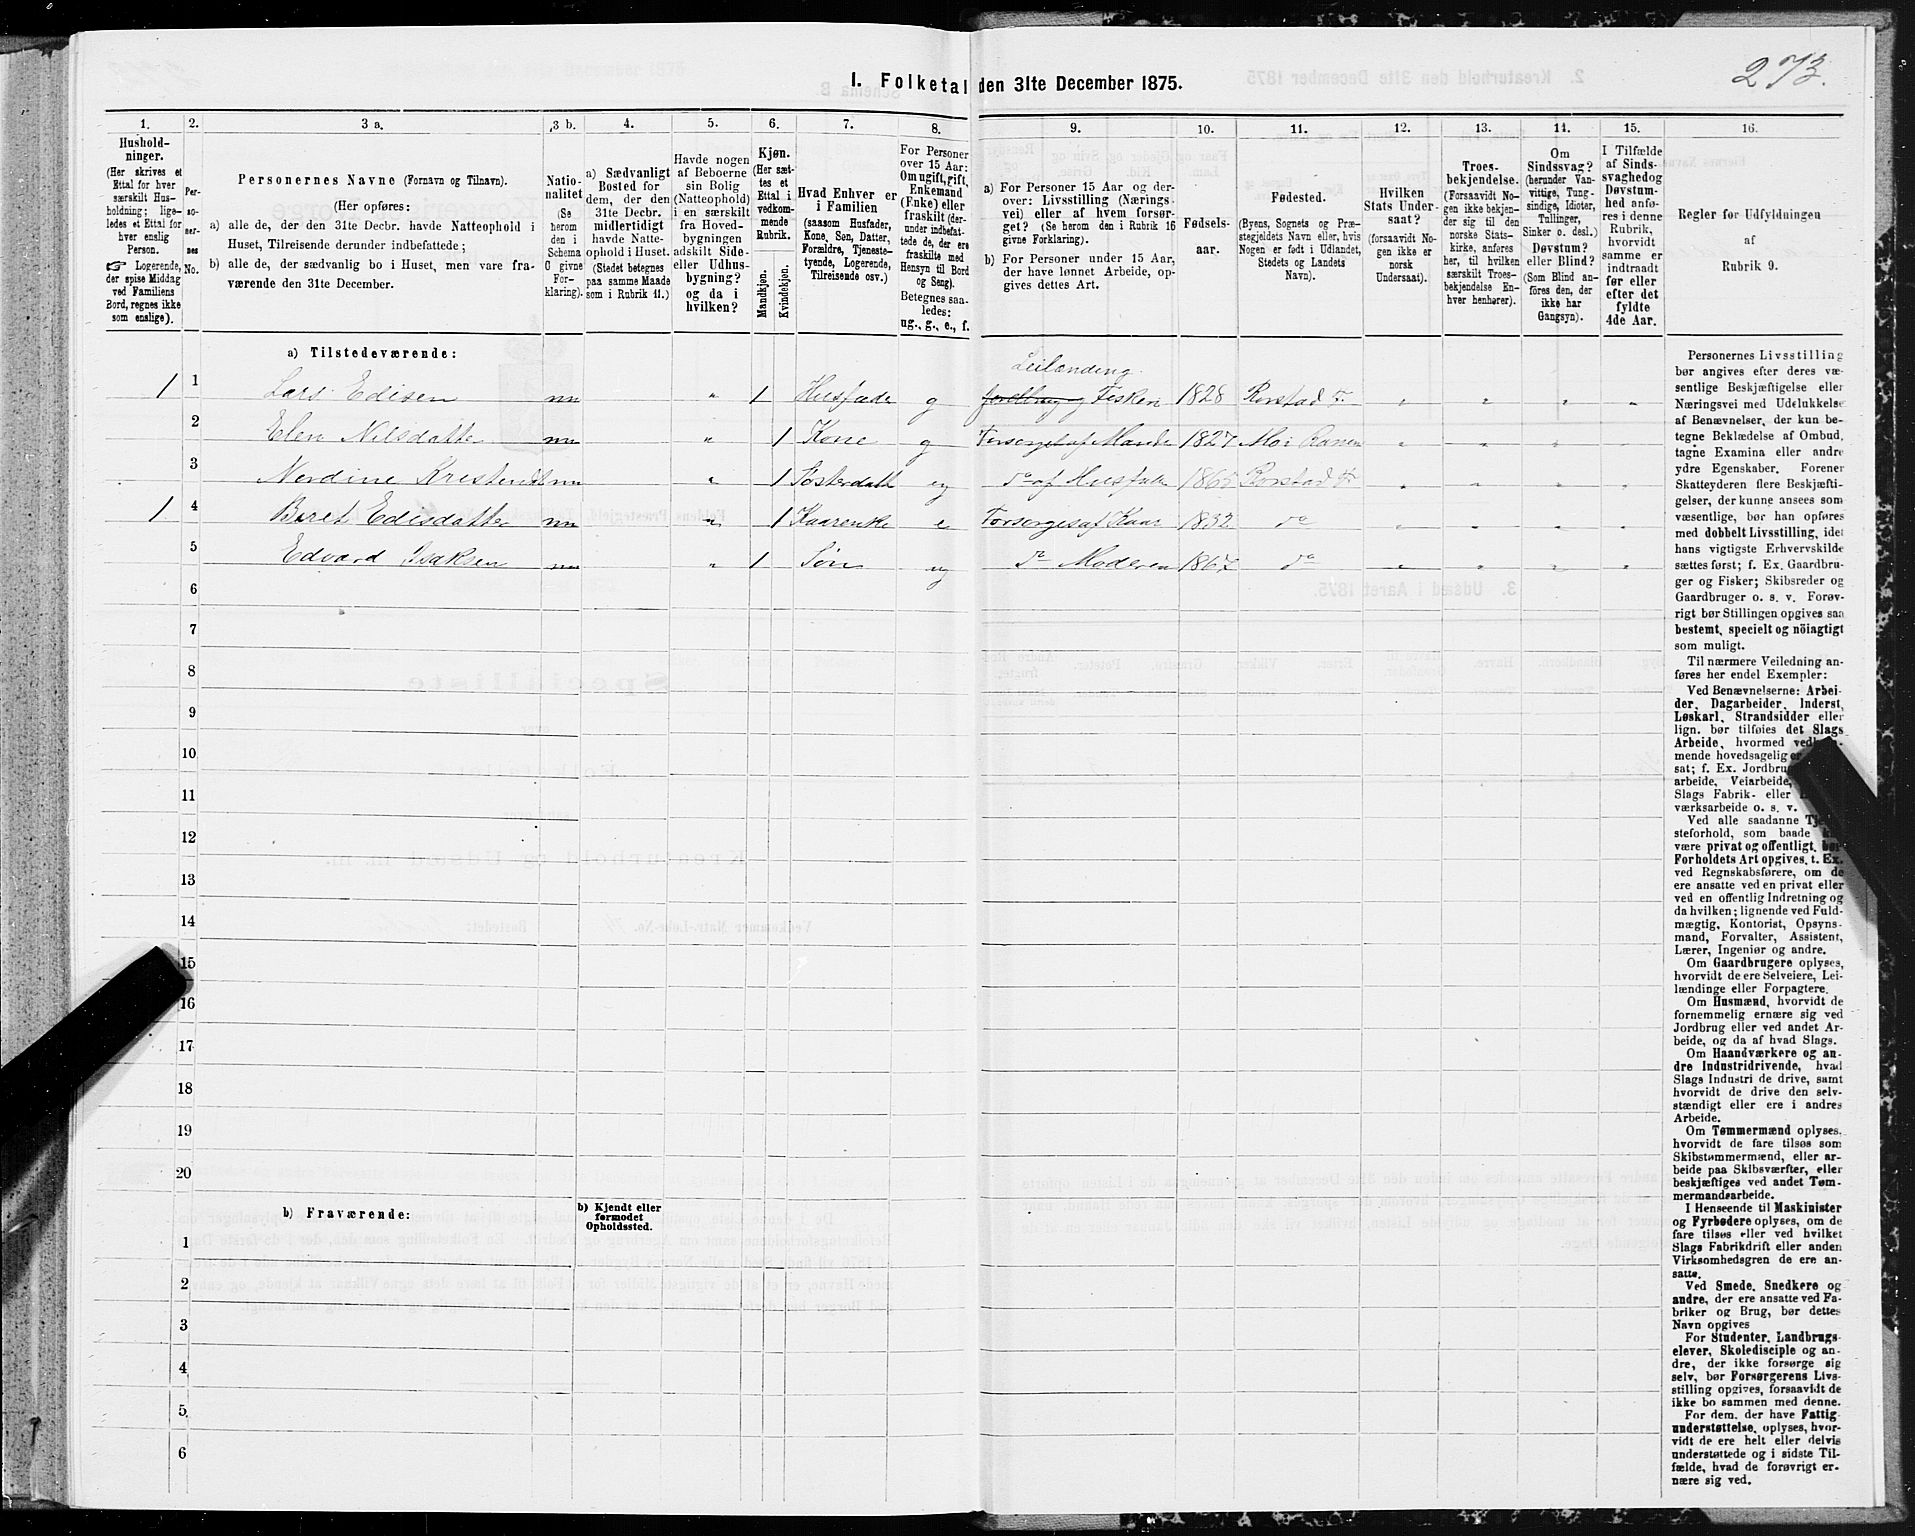 273.
I. Folketal den 31te December 1875.
1. 2. 3 a. 3 b. 4. 5. 6. 7. 8. 9. 10. 11. 12. 13. 14. 15. 16.
Hushold-
ninger.
(Her skrives et
Ettal for hver
særskilt Hus-
holdning; lige-
ledes et Ettal for
hver enslig
Person.
☞ Logerende,
der spise Middag
ved Familiens
Bord, regnes ikke
som enslige).
Per-
so-
ner-
nes
No.
Personernes Navne (Fornavn og Tilnavn).
(Her opføres:
a) alle de, der den 31te Decbr. havde Natteophold i
Huset, Tilreisende derunder indbefattede;
b) alle de, der sædvanlig bo i Huset, men vare fra-
værende den 31te December.
Natio-
nalitet
(Se
herom
den i
Schema
0 givne
For-
klaring).
a) Sædvanligt
Bosted for
dem, der den
31te Decbr.
midlertidigt
havde Natte-
ophold i Huset.
(Stedet betegnes
paa samme Maade
som i Rubrik 11.)
Havde nogen
af Beboerne
sin Bolig
(Natteophold)
i en særskilt
fra Hoved-
bygningen
adskilt Side-
eller Udhus-
bygning?
og da i
hvilken?
Kjøn.
(Her sæt-
tes et
Ettal i
vedkom-
mende
Rubrik.
Mandkjøn.
Kvindekjøn.
Hvad Enhver er
i Familien
(saasom Husfader,
Kone, Søn, Datter,
Forældre, Tjeneste-
tyende, Logerende,
Tilreisende osv.)
For Personer
over 15 Aar:
Om ugift, gift,
Enkemand
(Enke) eller
fraskilt (der-
under indbefat-
tede de, der ere
fraskilte med
Hensyn til Bord
og Seng).
Betegnes saa-
ledes:
ug., g., e., f.
a) For Personer 15 Aar og der-
over: Livsstilling (Nærings-
vei) eller af hvem forsør-
get? (Se herom den i Rubrik 16
givne Forklaring).
b) For Personer under 15 Aar,
der have lønnet Arbeide, op-
gives dettes Art.
Fødsels-
aar.
Fødested.
(Byens, Sognets og Præ-
stegjeldets Navn eller, hvis
Nogen er født i Udlandet,
Stedets og Landets
Navn).
Hvilken
Stats Under-
saat?
(forsaavidt No-
gen ikke er
norsk
Undersaat).
Troes-
bekjendelse.
(Forsaavidt No-
gen ikke bekjen-
der sig til den
norske Stats-
kirke, anføres
her, til hvilken
særskilt Troes-
bekjendelse En-
hver henhører).
Om
Sindssvag?
(herunder Van-
vittige, Tung-
sindige, Idioter,
Tullinger,
Sinker o. desl.)
Døvstum?
eller Blind?
(Som Blind an-
føres den, der
ikke har
Gangsyn).
I Tilfælde
af Sinds-
svaghed og
Døvstum-
hed anfø-
res i denne
Rubrik,
hvorvidt
samme er
indtraadt
før eller
efter det
fyldte
4de Aar.
Regler for Udfyldningen
af
Rubrik 9.
a) Tilstedeværende:
Leilending
1 1 Lars Edisen nn „ 1 Husfader g og Fisker 1828 Rorstad F. „ „ „ „
2 Elen Nilsdatter nn „ 1 Kone g Forsørget af Mande 1827 Moi Ranen „ „ „ „
3 Nordine nn „ 1 Søsterdatt ug do af Husfader 1865 Rorstad F. „ „ „ „
1 4 Beret Edisdatter nn „ 1 Kaarenke e Forsørges af Kaar 1832 do „ „ „ „
5 Edvard Isaksen nn „ 1 Søn ug do Moderen 1867 do „ „ „ „
6
7
8
9
10
11
12
13
14
15
16
17
18
19
20
b) Fraværende:
b) Kjendt eller
formodet
Opholdssted.
1
2
3
4
5
6
Personernes Livsstilling
bør angives efter deres væ-
sentlige Beskjæftigelse eller
Næringsvei med Udelukkelse
af Benævnelser, der kun be-
tegne Beklædelse af Ombud,
tagne Examina eller andre
ydre Egenskaber. Forener
Skatteyderen flere Beskjæfti-
gelser, der kunne ansees som
væsentlige, bør han opføres
med dobbelt Livsstilling, idet
hans vigtigste Erhvervskilde
sættes først; f. Ex. Gaardbru-
ger og Fisker; Skibsreder og
Gaardbruger o. s. v. Forøv-
rigt bør Stillingen opgives saa
bestemt, specielt og nöiagtigt
som muligt.
Til nærmere Veiledning an-
føres her endel Exempler:
Ved Benævnelserne: Arbei-
der, Dagarbeider, Inderst,
Løskarl, Strandsidder eller
lign. bør tilføies det Slags
Arbeide, hvormed
mende hovedsagelig er
sat; f. Ex. Jordbru
arbeide, Veiarbeide,
Slags Fabrik- eller
værksarbeide o. s. v.
Ved alle saadanne
steforhold, som baade
være privat og offentligt, bør
Forholdets Art opgives, t. Ex.
ved Regnskabsførere, om de
ere ansatte ved en privat eller
ved en offentlig Indretning og
da hvilken; lignende ved Fuld-
mægtig, Kontorist, Opsyns-
mand, Forvalter, Assistent,
Lærer, Ingeniør og andre.
Om Gaardbrugere oplyses,
hvorvidt de ere Selveiere, Lei-
lændinge eller Forpagtere.
Om Husmænd, hvorvidt de
fornemmelig ernære sig ved
Jordbrug eller ved andet Ar-
beide, og da af hvad Slags.
Om Haandværkere og an-
dre Industridrivende, hvad
Slags Industri de drive, samt
hvorvidt de drive den selv-
stændigt eller ere i andres
Arbeide.
Om Tømmermænd oplyses,
hvorvidt de fare tilsøs som
Skibstømmermænd, eller ar-
beide paa Skibsværfter, eller
beskjæftiges ved andet Tøm-
mermandsarbeide.
I Henseende til Maskinister
og Fyrbødere oplyses, om de
fare tilsøs eller ved hvilket
Slags Fabrikdrift eller anden
Virksomhedsgren de ere an-
satte.
Ved Smede, Snedkere og
andre, der ere ansatte ved Fa-
briker og Brug, bør dettes
Navn opgives
For Studenter, Landbrugs-
elever, Skoledisciple og an-
dre, der ikke forsørge sig
selv, bør Forsørgerens Livs-
stilling opgives, forsaavidt de
ikke bo sammen med denne.
For dem, der have Fattig-
understøttelse, oplyses, hvor-
vidt de ere helt eller delvis
understøttede og i sidste Til-
fælde, hvad de forøvrigt er-
nære sig ved.